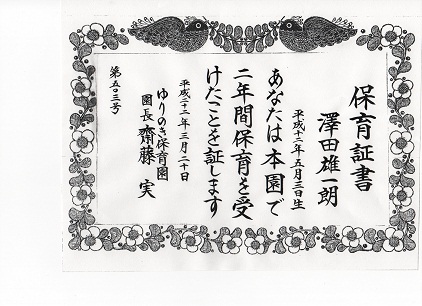 保育証書
澤田雄一朗
平成十二年五月三日生
あなたは本園で
二年間保育を受
けたことを証します
平成二十二年三月二十日
ゆりのき保育園
園長 齋藤 実
第五〇三号